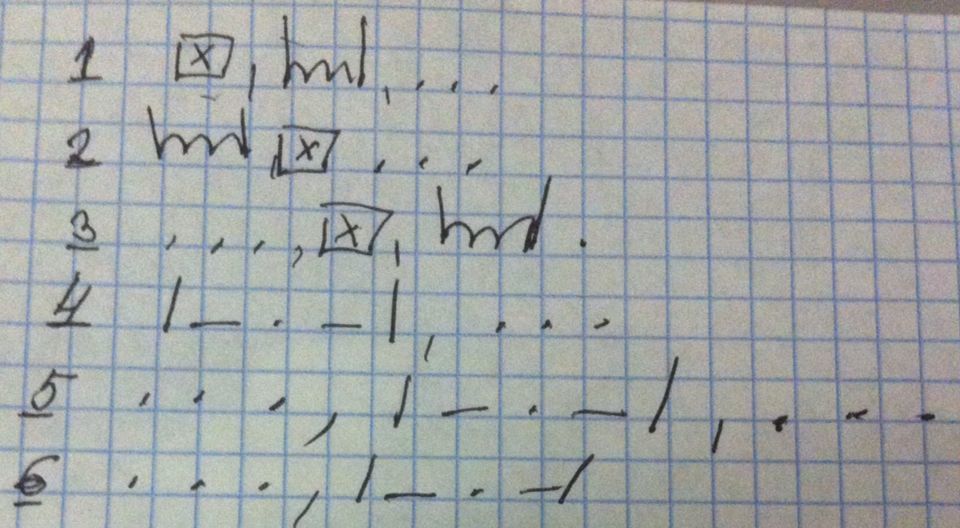 1 [x], |~~~|, . . .
2 |~~~|, [x] . . .
3 . . . , [x], |~~~| .
4 |— . —|, . . .
5 . . . , |— . —|, . . .
6 . . . , |— . —|